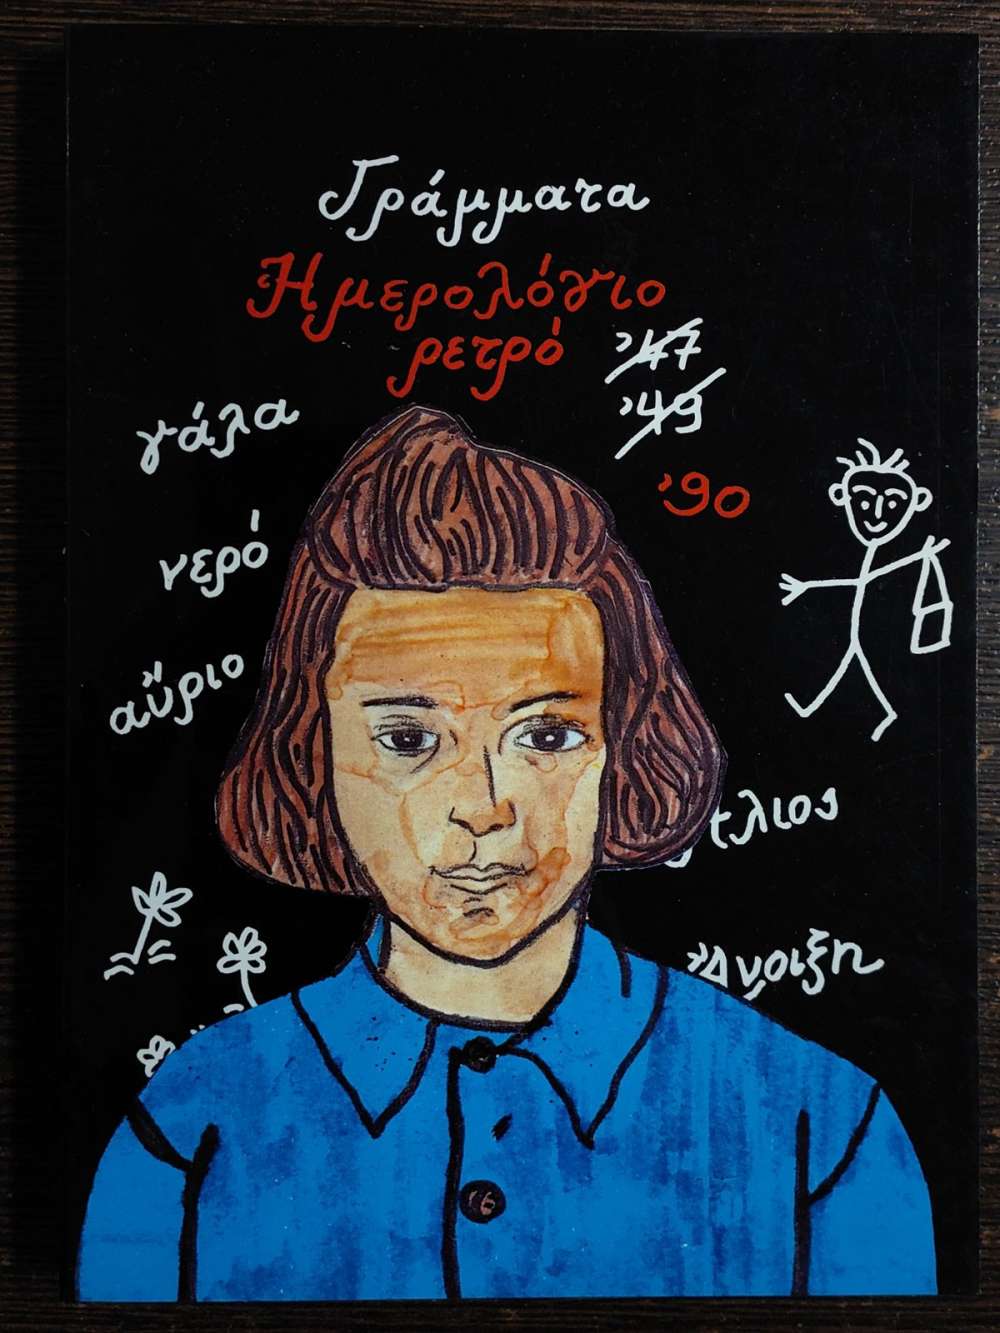 Γράμματα
Ἡμερολόγιο
ρετρό
'47
'49
'90
γάλα
νερό
αὔριο
Ἄνοιξη
16